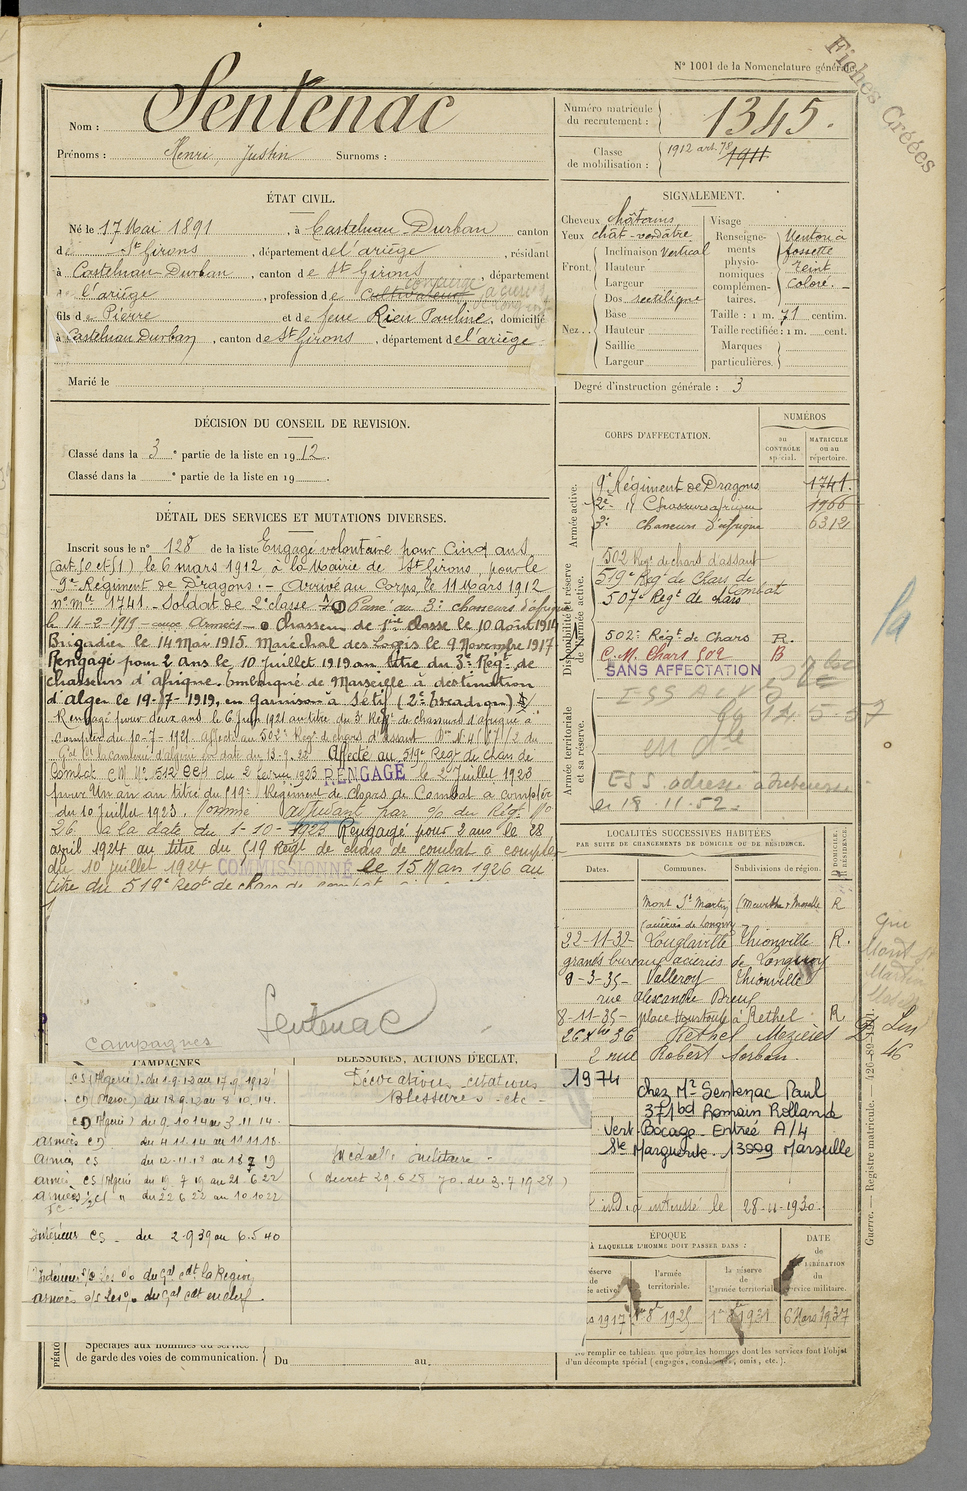 N° 1001 de la Nomenclature générale
Fiches Créées
Nom : Sentenac
Prénoms : Henri, Justin Surnoms :
Numéro matricule du recrutement : 1345.
Classe de mobilisation : 1912 art. 78 1911
ÉTAT CIVIL.
Né le 17 Mai 1891, à Castelnau Durban canton
de St Girons, département de l'ariège, résidant
à Castelnau-Durban, canton de St Girons, département
de l'ariège, profession de cultivateur concierge
fils de Pierre et de feue Rieu Pauline, domicilié
à Castelnau Durban, canton de St Girons, département de l'ariège
Marié le
SIGNALEMENT.
Cheveux châtains
Yeux chât-verdâtre
Front. Inclinaison vertical
Hauteur
Largeur
Nez. Dos rectiligne
Base
Hauteur
Saillie
Largeur
Visage
Renseignements physionomiques complémentaires. Menton à fossette teint coloré.
Taille : 1 m. 71 centim.
Taille rectifiée : 1 m. cent.
Marques particulières.
Degré d'instruction générale : 3
DÉCISION DU CONSEIL DE REVISION.
Classé dans la 3e partie de la liste en 1912.
Classé dans la e partie de la liste en 19 .
CORPS D'AFFECTATION.
NUMÉROS
au CONTRÔLE spécial.
MATRICULE ou au répertoire.
Armée active.
9e Régiment de Dragons 1741.
2e - d' Chasseurs afrique 1966
3e chasseurs d'afrique 6312
Disponibilité et réserve de l'armée active.
502 Regt de chars d'assaut
519e Regt de Chars de Combat
507e Regt de chars
502e Régt de Chars R.
C.M. Chars 502 B
SANS AFFECTATION
Armée territoriale et sa réserve.
14-5-57
ESS adresse à
le 18-11-52
DÉTAIL DES SERVICES ET MUTATIONS DIVERSES.
Inscrit sous le n° 128 de la liste Engagé volontaire pour Cinq ans
(art. 50 et 51) le 6 mars 1912 à la Mairie de St Girons, pour le
9e Régiment de Dragons. - Arrivé au Corps, le 11 Mars 1912
n° mle 1741. Soldat de 2e classe Passé au 3e chasseurs d'afrique
le 14-2-1919 - aux Armées - Chasseur de 1ère classe le 10 Août 1914
Brigadier le 14 Mai 1915. Maréchal des Logis le 9 Novembre 1917
Rengagé pour 2 ans le 10 Juillet 1919 au titre du 3e Régt de
chasseurs d'afrique. Embarqué de Marseille à destination
d'alger le 19-7-1919, en garnison à Sétif (2e Escadron)
Rengagé pour deux ans le 6 juin 1921 au titre du 3e Régt de chasseurs d'afrique à
compter du 10-7-1921 affecté au 502e Regt de chars d'assaut
Affecté au 519e Regt de chars de
Combat C.M. N° 512 du 2 février 1923 RENGAGÉ le 2 Juillet 1923
pour Un an au titre du 519e Régiment de Chars de Combat à compter
du 10 Juillet 1923. Nommé adjudant par % du Régt N°
26 à la date du 1-10-1923 Rengagé pour 2 ans le 28
avril 1924 au titre du 519 Régt de chars de combat à compter
du 10 juillet 1924 COMMISSIONNÉ le 15 Mars 1926 au
titre du 519e Regt de chars de combat
Sentenac
Campagnes
CAMPAGNES
CS (Algérie) du 1.9.12 au 17.9.1912
CD (Maroc) du 18.9.12 au 8.10.14.
CD (Algérie) du 9.10.14 au 3.11.14.
armées CD du 4.11.14 au 11.11.18.
armées CS du 12.11.18 au 18 7 19
armées CS (Algérie) du 19.7.19 au 21.6.22
armées du 22 6 22 au 10.10.22
Intérieur CS - du 2-9.39 au 6.5.40
Intérieur du Gal Cdt la Région
armées du Gal Cdt en chef.
BLESSURES, ACTIONS D'ÉCLAT,
Décorations, citations
Blessures - etc -
Médaille militaire -
(décret 29.6.28 J.O. du 3.7.1928)
LOCALITÉS SUCCESSIVES HABITÉES
PAR SUITE DE CHANGEMENTS DE DOMICILE OU DE RÉSIDENCE.
Dates. Communes. Subdivisions de région. D DOMICILE. R RÉSIDENCE.
Mont St Martin (Meurthe & Moselle R
(aciéries de Longwy
22-11-32- Longlaville Thionville R.
grands bureaux aciéries de Longwy
8-3-35- Valleroy Thionville
rue Alexandre Dreux
8-11-35- place Hourtoule à Rethel R
26 Xbre 36 Rethel Mézières D
2 rue Robert Sorbon.
1974 chez Mr Sentenac Paul
371 bd Romain Rolland
Vert Bocage - Entrée A/4
Ste Marguerite. 13009 Marseille
à intéressé le 28-11-1930.
ÉPOQUE
À LAQUELLE L'HOMME DOIT PASSER DANS :
réserve de active.
l'armée territoriale.
la réserve de l'armée territoriale
DATE de LIBÉRATION du service militaire.
1917 1er 8bre 1925 1er 8bre 1931 6 Mars 1937
Ne remplir ce tableau que pour les hommes dont les services font l'objet
d'un décompte spécial (engagés, condamnés, omis, etc.).
Spéciales aux hommes du service
de garde des voies de communication. Du au
Guerre. — Registre matricule. — 426-89-1911.